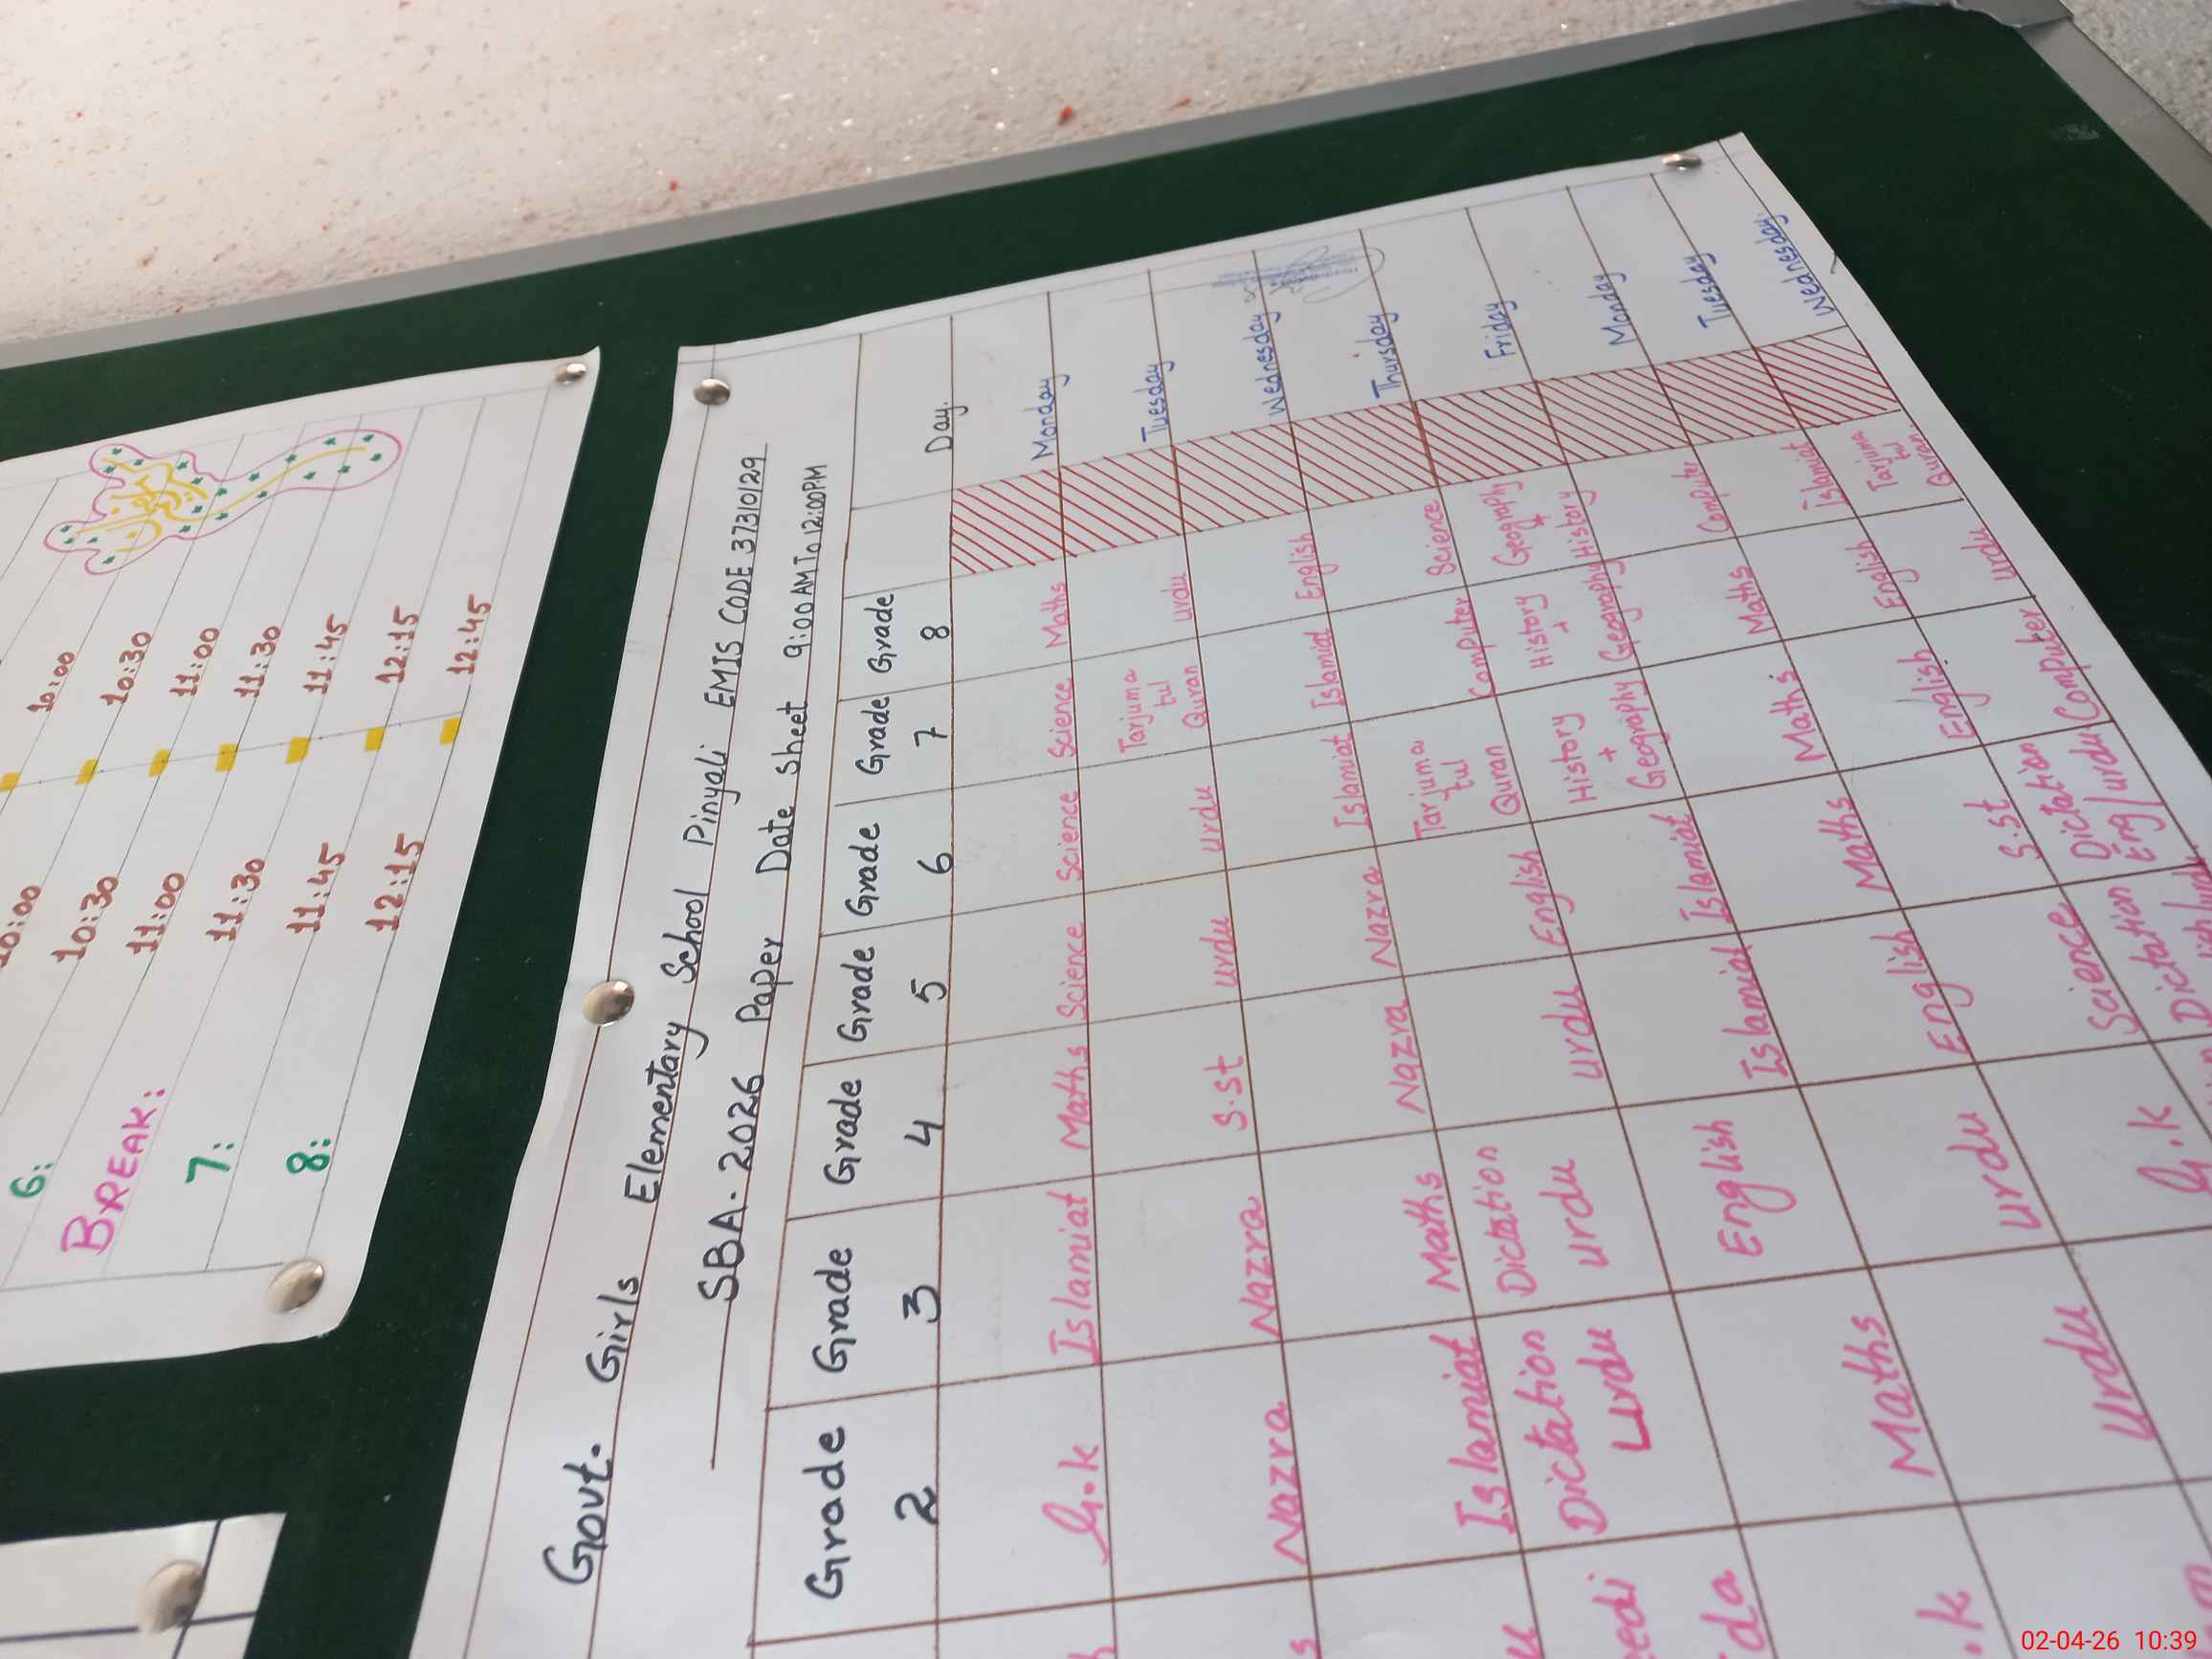 10:00 10:00
10:30 10:30
6: 11:00 11:00
BREAK: 11:30 11:30
7: 11:45 11:45
8: 12:15 12:15
12:45
Govt. Girls Elementary School Pinyali EMIS CODE 37310129
SBA-2026 Paper Date Sheet 9:00AM To 12:00PM
Grade Grade Grade Grade Grade Grade Grade
2 3 4 5 6 7 8 Day.
G.k Islamiat Maths Science Science Science Maths Monday
Nazra Nazra S.st Urdu Urdu Tarjuma tul Quran Urdu Tuesday
Islamiat Maths Nazra Nazra Islamiat Islamiat English Wednesday
Dictation Urdu Dictation Urdu Urdu English Tarjuma tul Quran Computer Science Thursday
English Islamiat Islamiat History + Geography History + Geography Geography + History Friday
Maths Urdu English Maths Maths Maths Computer Monday
Urdu G.k Science S.st English English Islamiat Tuesday
Dictation Dictation Eng/urdu Computer Urdu Tarjuma tul Quran Wednesday
02-04-26 10:39